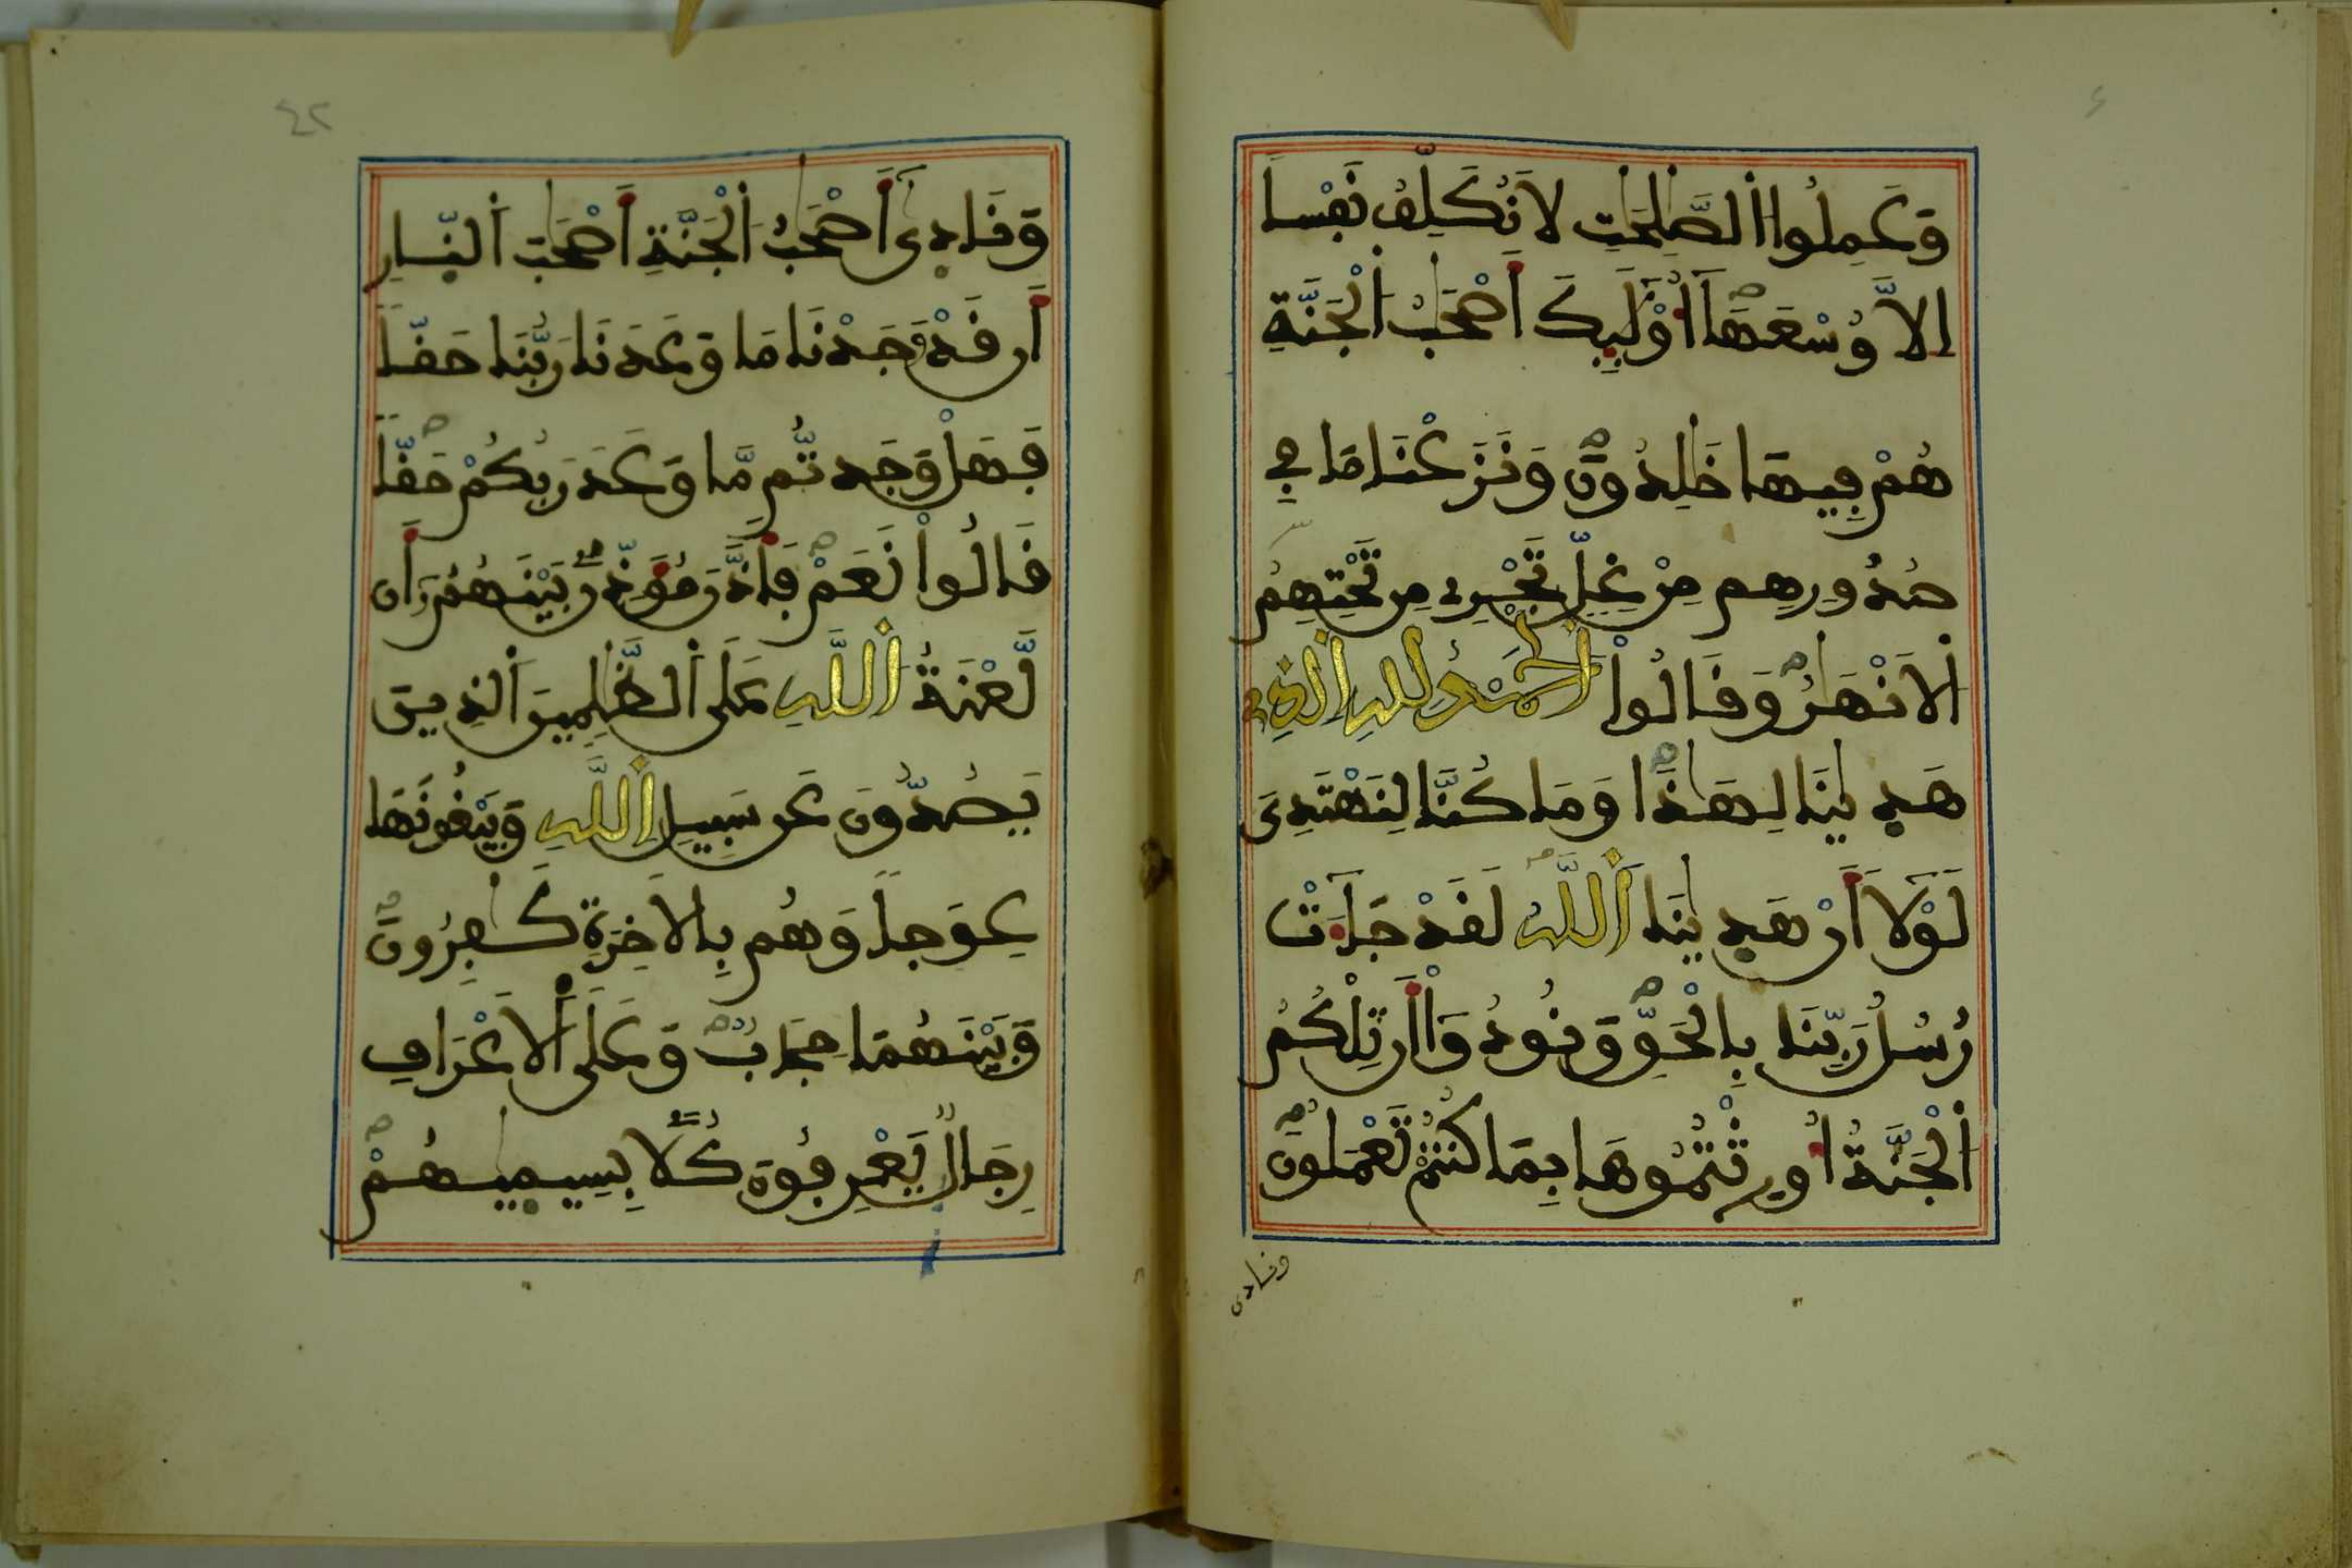 وَعَمِلُوا الصَّٰلِحَٰتِ لَا نُكَلِّفُ نَفْسًا
إِلَّا وُسْعَهَآ أُوْلَٰٓئِكَ أَصْحَٰبُ الْجَنَّةِ
هُمْ فِيهَا خَٰلِدُونَ وَنَزَعْنَا مَا فِے
صُدُورِهِم مِّنْ غِلٍّ تَجْرِے مِن تَحْتِهِمُ
الَانْهَٰرُ وَقَالُواْ الْحَمْدُ لِلهِ الذِے
هَدٰىنَا لِهَٰذَا وَمَا كُنَّا لِنَهْتَدِىَ
لَوْلَآ أَنْ هَدٰىنَا اَللَّهُ لَقَدْ جَآءَتْ
رُسُلُ رَبِّنَا بِالْحَقِّ وَنُودُوٓاْ أَن تِلْكُمُ
اُلْجَنَّةُ أُورِثْتُمُوهَا بِمَا كُنتُمْ تَعْمَلُونَ
ونادى
٤٢
وَنَادٰىٓ أَصْحَٰبُ الْجَنَّةِ أَصْحَٰبَ النّارِ
أَن قَدْ وَجَدْنَا مَا وَعَدَنَا رَبُّنَا حَقّاً
فَهَلْ وَجَدتُّم مَّا وَعَدَ رَبُّكُمْ حَقّاً
قَالُواْ نَعَمْ فَأَذَّنَ مُؤَذِّنٌ بَيْنَهُمُۥٓ أَن
لَّعْنَةُ اُللَّهِ عَلَى اَلظَّٰلِمِينَ اَلذِينَ
يَصُدُّونَ عَن سَبِيلِ اِللَّهِ وَيَبْغُونَهَا
عِوَجاً وَهُم بِالَاخِرَةِ كَٰفِرُونَ
وَبَيْنَهُمَا حِجَابٌ وَعَلَى اَلَاعْرَافِ
رِجَالٌ يَعْرِفُونَ كُلًّا بِسِيمٰىهُمْ